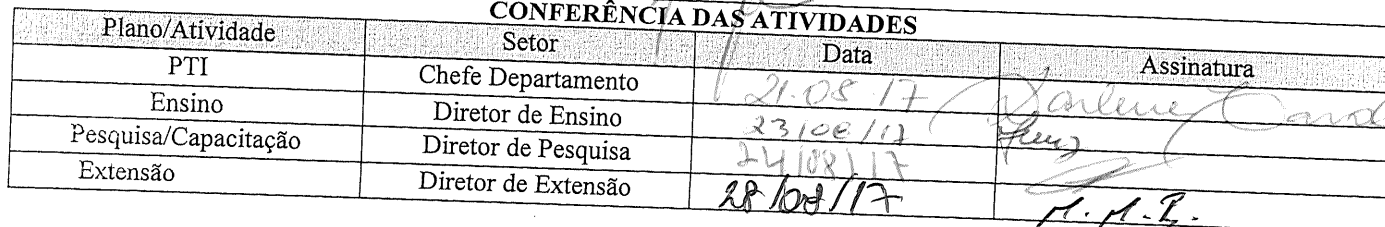 CONFERÊNCIA DAS ATIVIDADES
Plano/Atividade Setor Data Assinatura
PTI Chefe Departamento 21.08.17 Darlene
Ensino Diretor de Ensino 23/08/17
Pesquisa/Capacitação Diretor de Pesquisa 24/08/17
Extensão Diretor de Extensão 28/08/17 M.M.B.